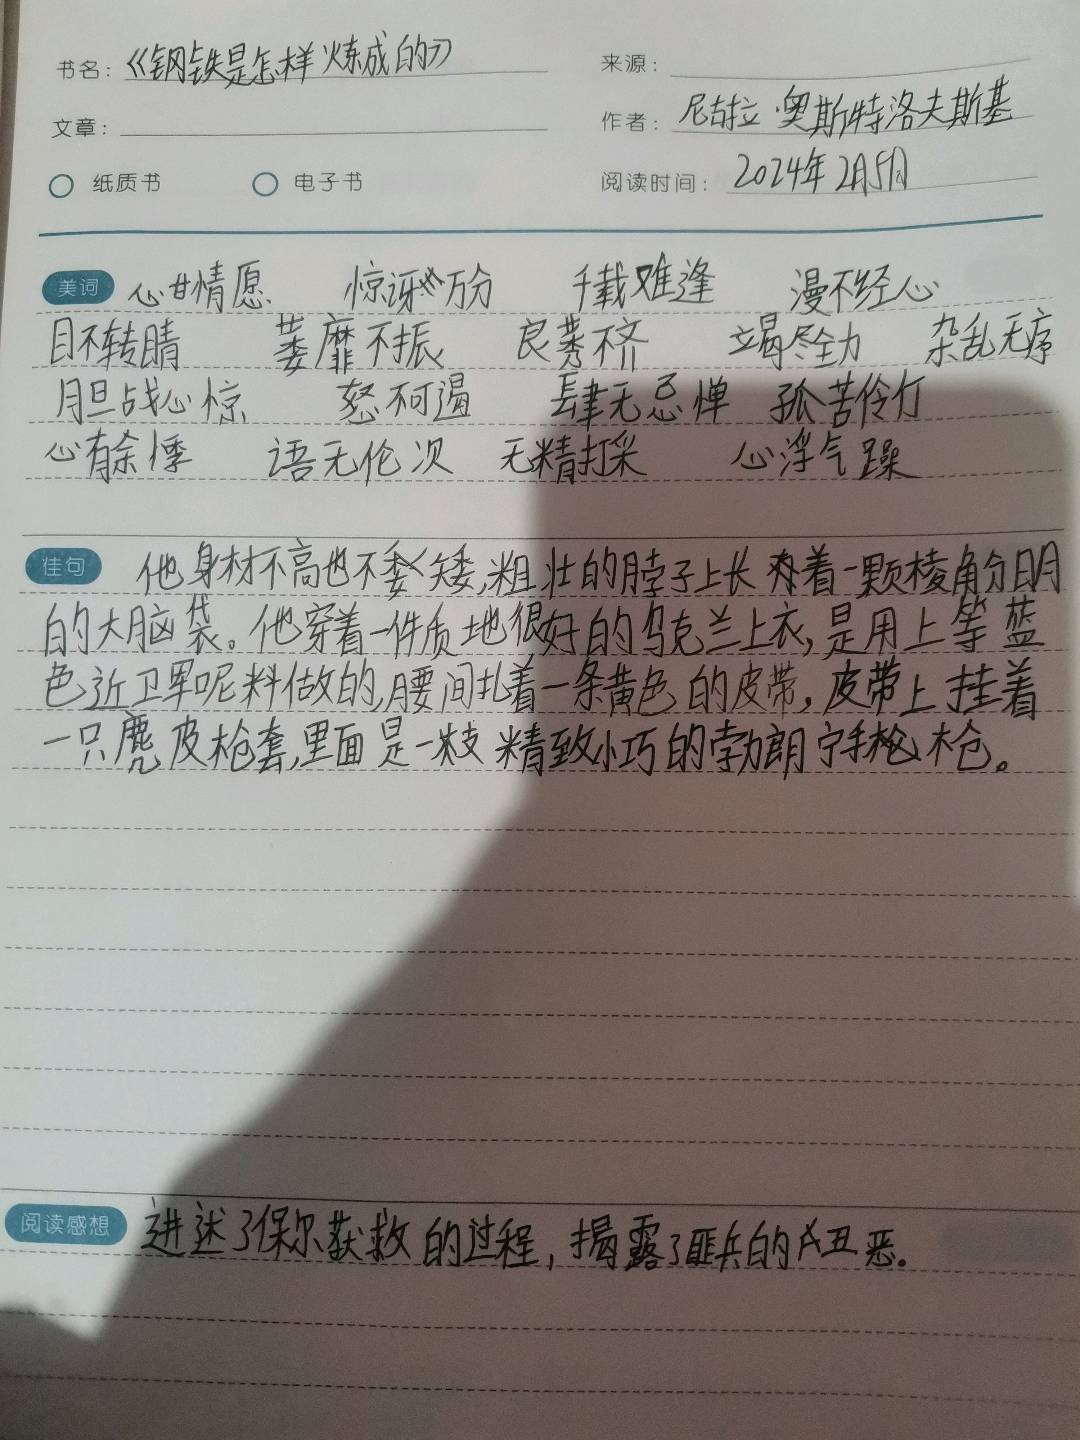 书名：《钢铁是怎样炼成的》 来源：
文章： 作者：尼古拉·奥斯特洛夫斯基
纸质书 电子书 阅读时间：2024年2月5日
美词 心甘情愿 惊讶万分 千载难逢 漫不经心
目不转睛 萎靡不振 良莠不齐 竭尽全力 杂乱无序
胆战心惊 怒不可遏 肆无忌惮 孤苦伶仃
心有余悸 语无伦次 无精打采 心浮气躁
佳句 他身材不高也不矮,粗壮的脖子上长着一颗棱角分明
的大脑袋。他穿着一件质地很好的乌克兰上衣,是用上等蓝
色近卫军呢料做的,腰间扎着一条黄色的皮带,皮带上挂着
一只麂皮枪套,里面是一枝精致小巧的勃朗宁手枪。
阅读感想 讲述了保尔获救的过程,揭露了匪兵的丑恶。